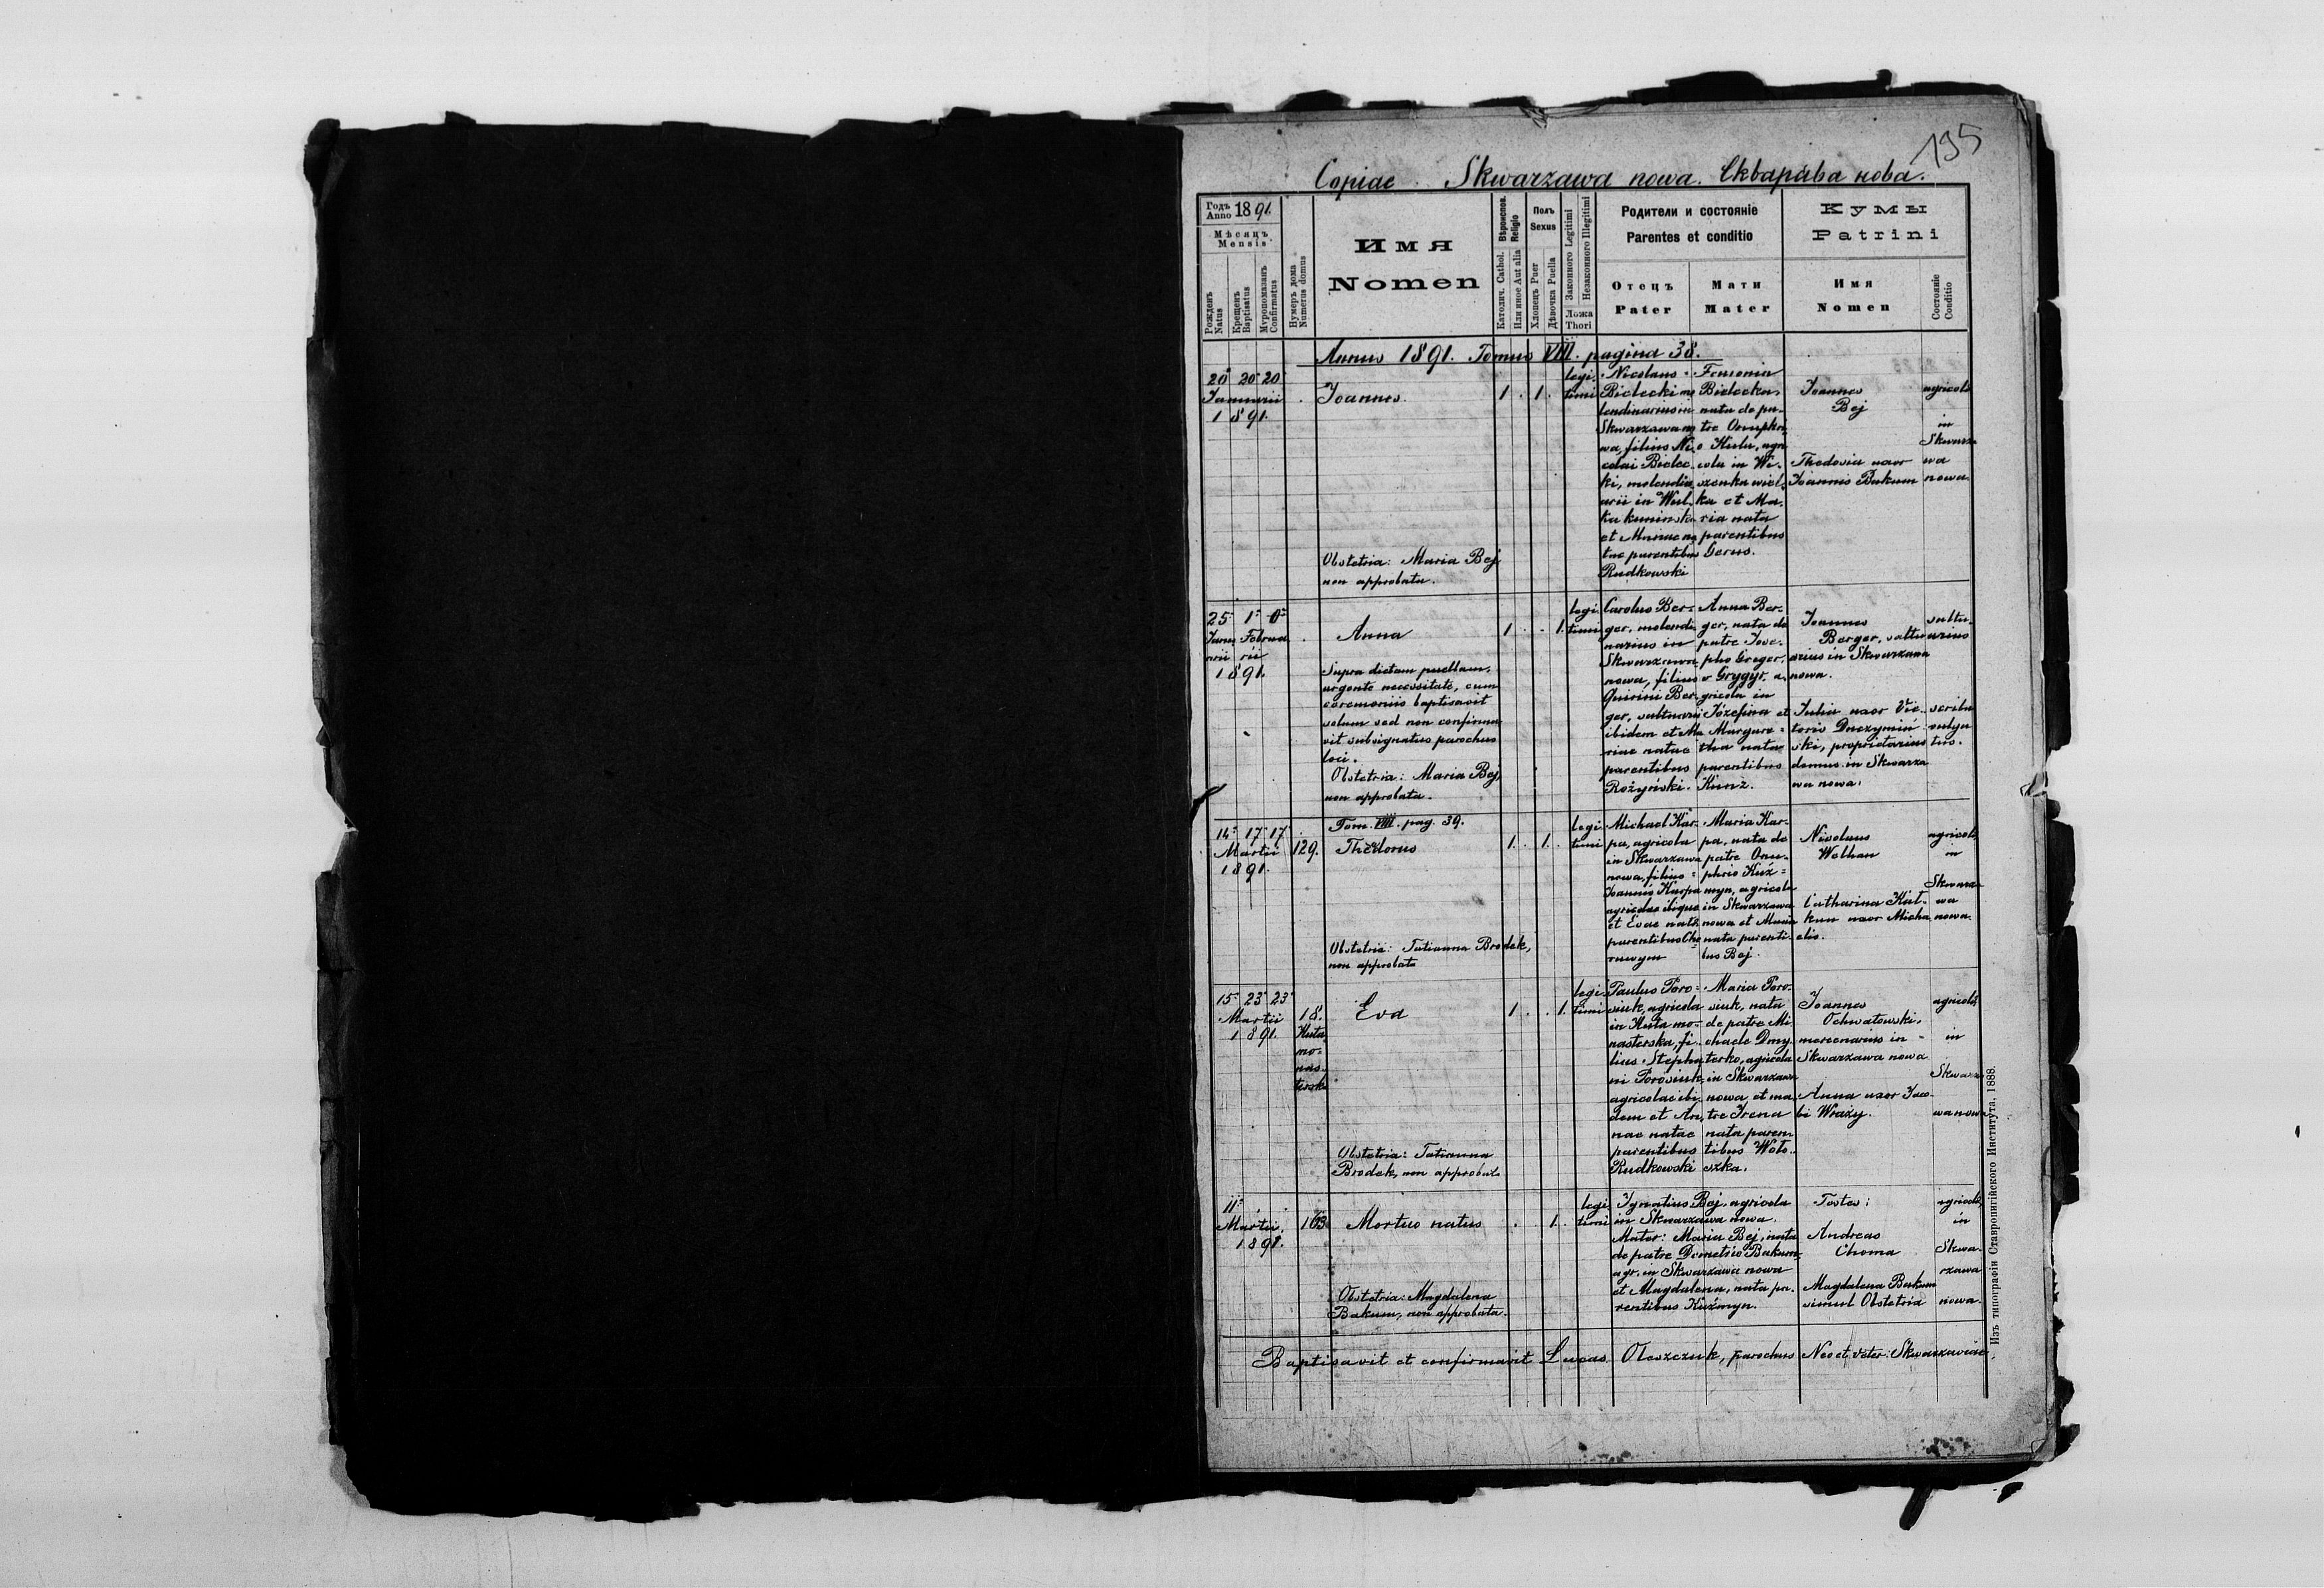 195
Copiae . Skwarzawa nowa. Скварѣва нова.
Годъ Anno 1891.
Мѣсяцъ Mensis
Рожденъ Natus
Крещенъ Baptisatus
Мѵропомазанъ Confirmatus
Нумеръ дома Numerus domus
Имя
Nomen
Вѣроисповѣд. Religio
Католич. Cathol.
Или иное Aut alia
Полъ Sexus
Хлопецъ Puer
Дѣвочка Puella
Законного Legitimi
Незаконного Illegitimi
Ложа Thori
Родители и состояніе
Parentes et conditio
Отецъ
Pater
Мати
Mater
Кумы
Patrini
Имя
Nomen
Состояніе
Conditio
Annus 1891. Tomus VIII. pagina 38.
20 20 20
Januarii
1891.
Joannes.
1. 1.
legi-
timi
Nicolaus
Bielecki mo
lendinarius in
Skwarzawa no
wa, filius Ni
colai Bielec
ki, molendin
arii in Wul-
ka kuninska
et Mariae na
tae parentibus
Rudkowski
Femonia
Bielecka,
nata de pa-
tre Onuphri
o Hulu, agri
cola in Wi-
szenka wiel-
ka et Ma-
ria nata
parentibus
Gerus.
Joannes
Bej
Thedosia uxor
Joannis Bakum
agricolae
in
Skwarza
wa
nowa.
Obstetria: Maria Bej
non approbata.
25 1 0
Janu Februa
arii rii
1891.
Anna
1. 1.
legi-
timi
Supra dictam puellam,
urgente necessitate, cum
ceremoniis baptisavit
solum sed non confirma
vit subsignatus parochus
loci.
Obstetria: Maria Bej,
non approbata.
Carolus Ber-
ger, molendi
narius in
Skwarzawa
nowa, filius
Quirini Ber-
ger, saltuarii
ibidem et Ma
riae natae
parentibus
Rożyński.
Anna Ber-
ger, nata de
patre Jose-
pho Greger,
v Grygyr, a-
gricola in
Józefina et
Margare-
tha nata
parentibus
Kunz.
Joannes
Berger, saltu
arius in Skwarzawa
nowa.
Julia uxor Vic-
toris Duczymiń-
ski, proprietarius
domus in Skwarza
wa nowa.
saltu-
arius
scriba
Tom. VIII. pag. 39.
14 17 17
Martii
1891.
129.
Theodorus
1. 1.
legi-
timi
Michael Kar-
pa, agricola
in Skwarzawa
nowa, filius
Joannis Karpa
agricolae ibique
et Evae natae
parentibus Cho
rungm
Maria Kar-
pa, nata de
patre Onu-
phrio Kuź-
myn, agricola
in Skwarzawa
nowa et Maria
nata parenti-
bus Bej.
Nicolaus
Wolhan
Catharina Kal-
kun uxor Micha
elis.
agricolae
in
Skwarza
wa
nowa.
Obstetria: Tatianna Brodek,
non approbata
15 23 23
Martii
1891.
18.
Huta
mo-
nas-
terska
Eva
1. 1.
legi-
timi
Paulus Poro-
siuk, agricola
in Huta mo-
nasterska, fi-
lius Stepha
ni Porosiuk,
agricolae ibi-
dem et An-
nae natae
parentibus
Rudkowski
Maria Poro-
siuk, nata
de patre Mi
chaele Dmy
terko, agricola
in Skwarzawa
nowa et ma-
tre Irena
nata paren-
tibus Woto-
szka.
Joannes
Ochwatowski,
mercenarius in
Skwarzawa nowa
Anna uxor Jaco-
bi Wraży.
agricolae
in
Skwarza
wa nowa
Obstetria: Tatianna
Brodek, non approbata
11
Martii
1891.
163
Mortuo natus
1.
legi-
timi
Ignatius Bej, agricola
in Skwarzawa nowa.
Mater: Maria Bej, nata
de patre Demetrio Bakum,
agr. in Skwarzawa nowa
et Magdalena, nata pa-
rentibus Kuźmyn.
Testes:
Andreas
Choma
Magdalena Bakum
simul Obstetria
agricolae
in
Skwa-
rzawa
nowa.
Obstetria: Magdalena
Bakum, non approbata.
Baptisavit et confirmavit Lucas Oleszczuk, parochus Neo et veter: Skwarzaviae.
Изъ типографіи Ставропигійского Института. 1888.